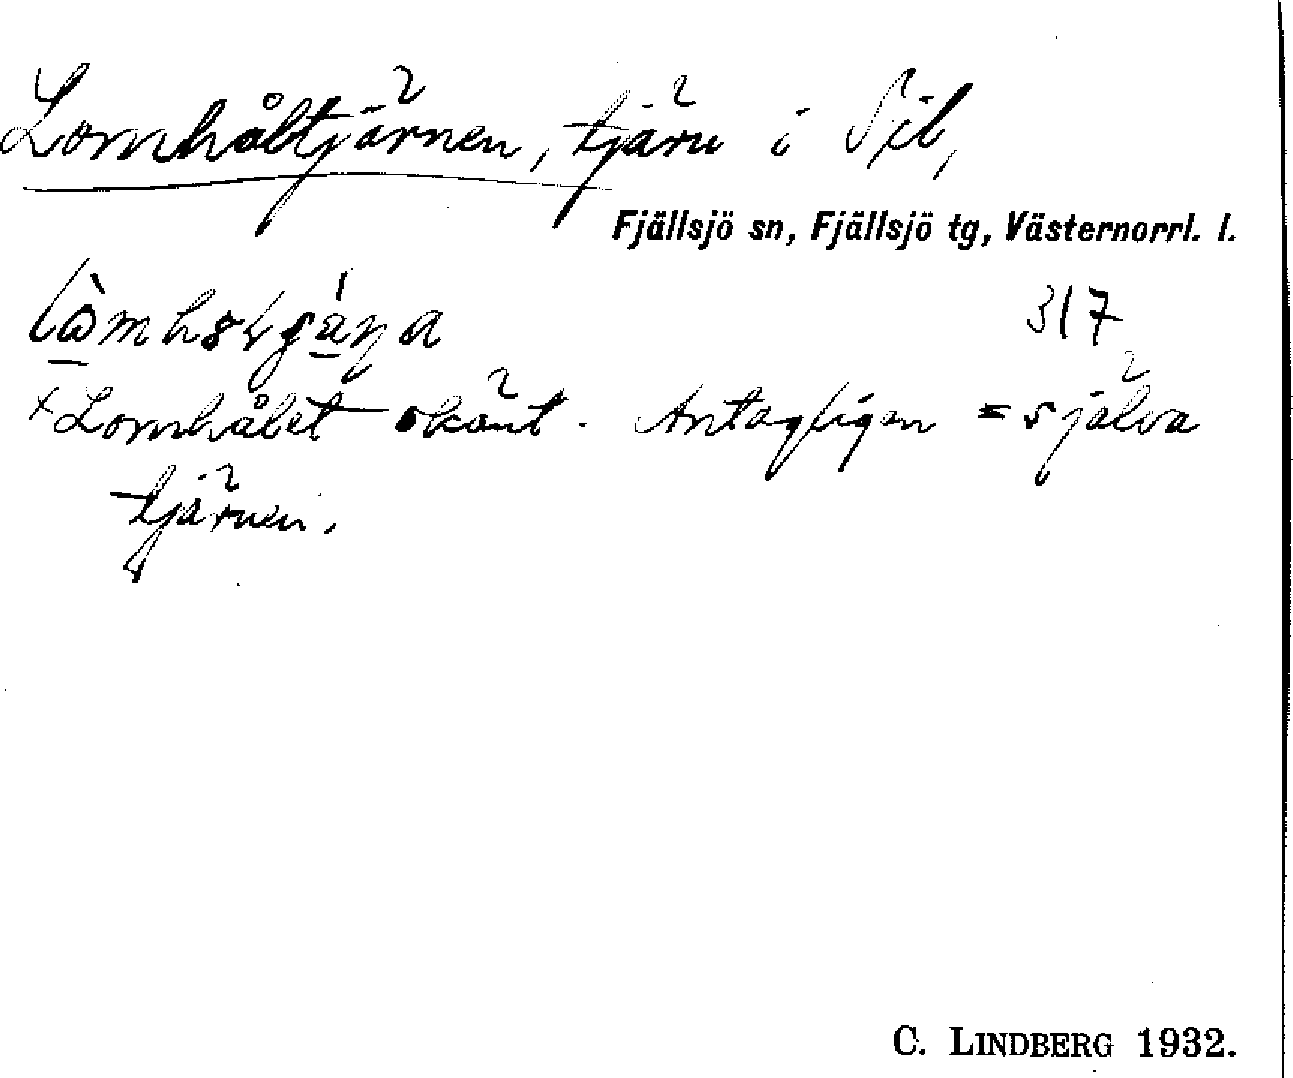 Lomhåltjärnen, tjärn i Sil,
Fjällsjö sn, Fjällsjö tg, Västernorrl. l.
317
×Lomhålet okänt. Antagligen = själva
tjärnen.
C. LINDBERG 1932.